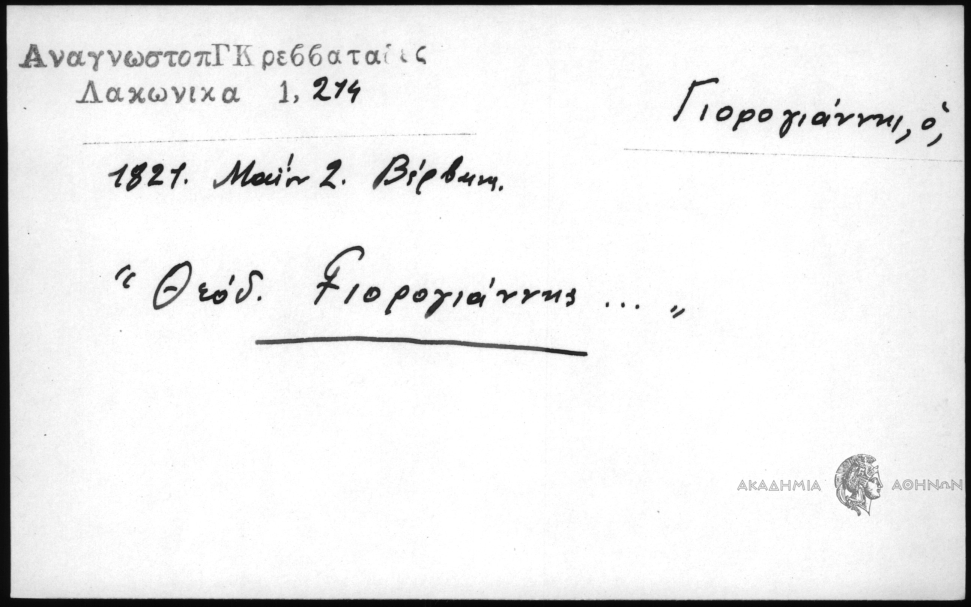 ΑναγνωστοπΓΚρεββαταδες
Λακωνικα 1, 214
Γιορογιάννης, ὁ,
1821. Μαΐου 2. Βέρβενα.
“ Θεόδ. Γιορογιάννης ... „
ΑΚΑΔΗΜΙΑ ΑΘΗΝΩΝ